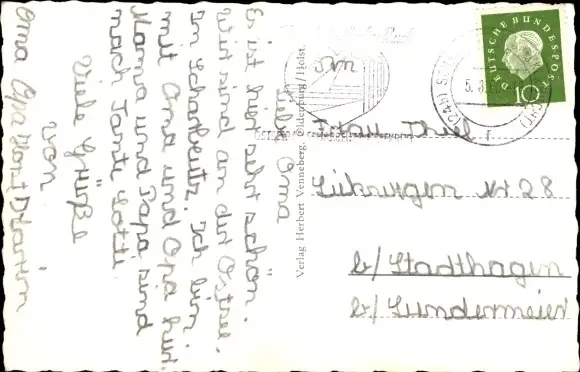 Liebe Oma
Es ist hier sehr schön.
Wir sind an der Ostsee.
In Scharbeutz. Ich bin
mit Oma und Opa hier.
Mama und Papa sind
nach Tante Lotti
Viele Grüße
von
Oma Opa Horst
Verlag Herbert Venneberg, Oldenburg/Holst.
DEUTSCHE BUNDESPOST
10
An
Thiel
Lühringen Nr 28
b/ Stadthagen
b/ Lundermeier